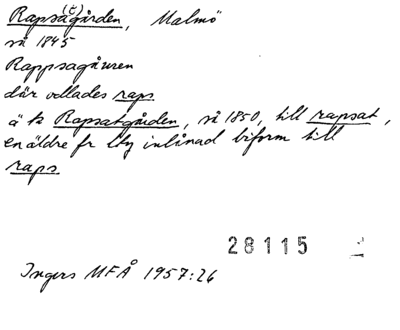 Rapsa(t)gården, Malmö
så 1845
Rappsagåuren
där odlades raps
ä ts Rapsatgården, så 1850, till rapsat,
en äldre fr lty inlånad biform till
raps
28115
Ingers MFÅ 1957:26